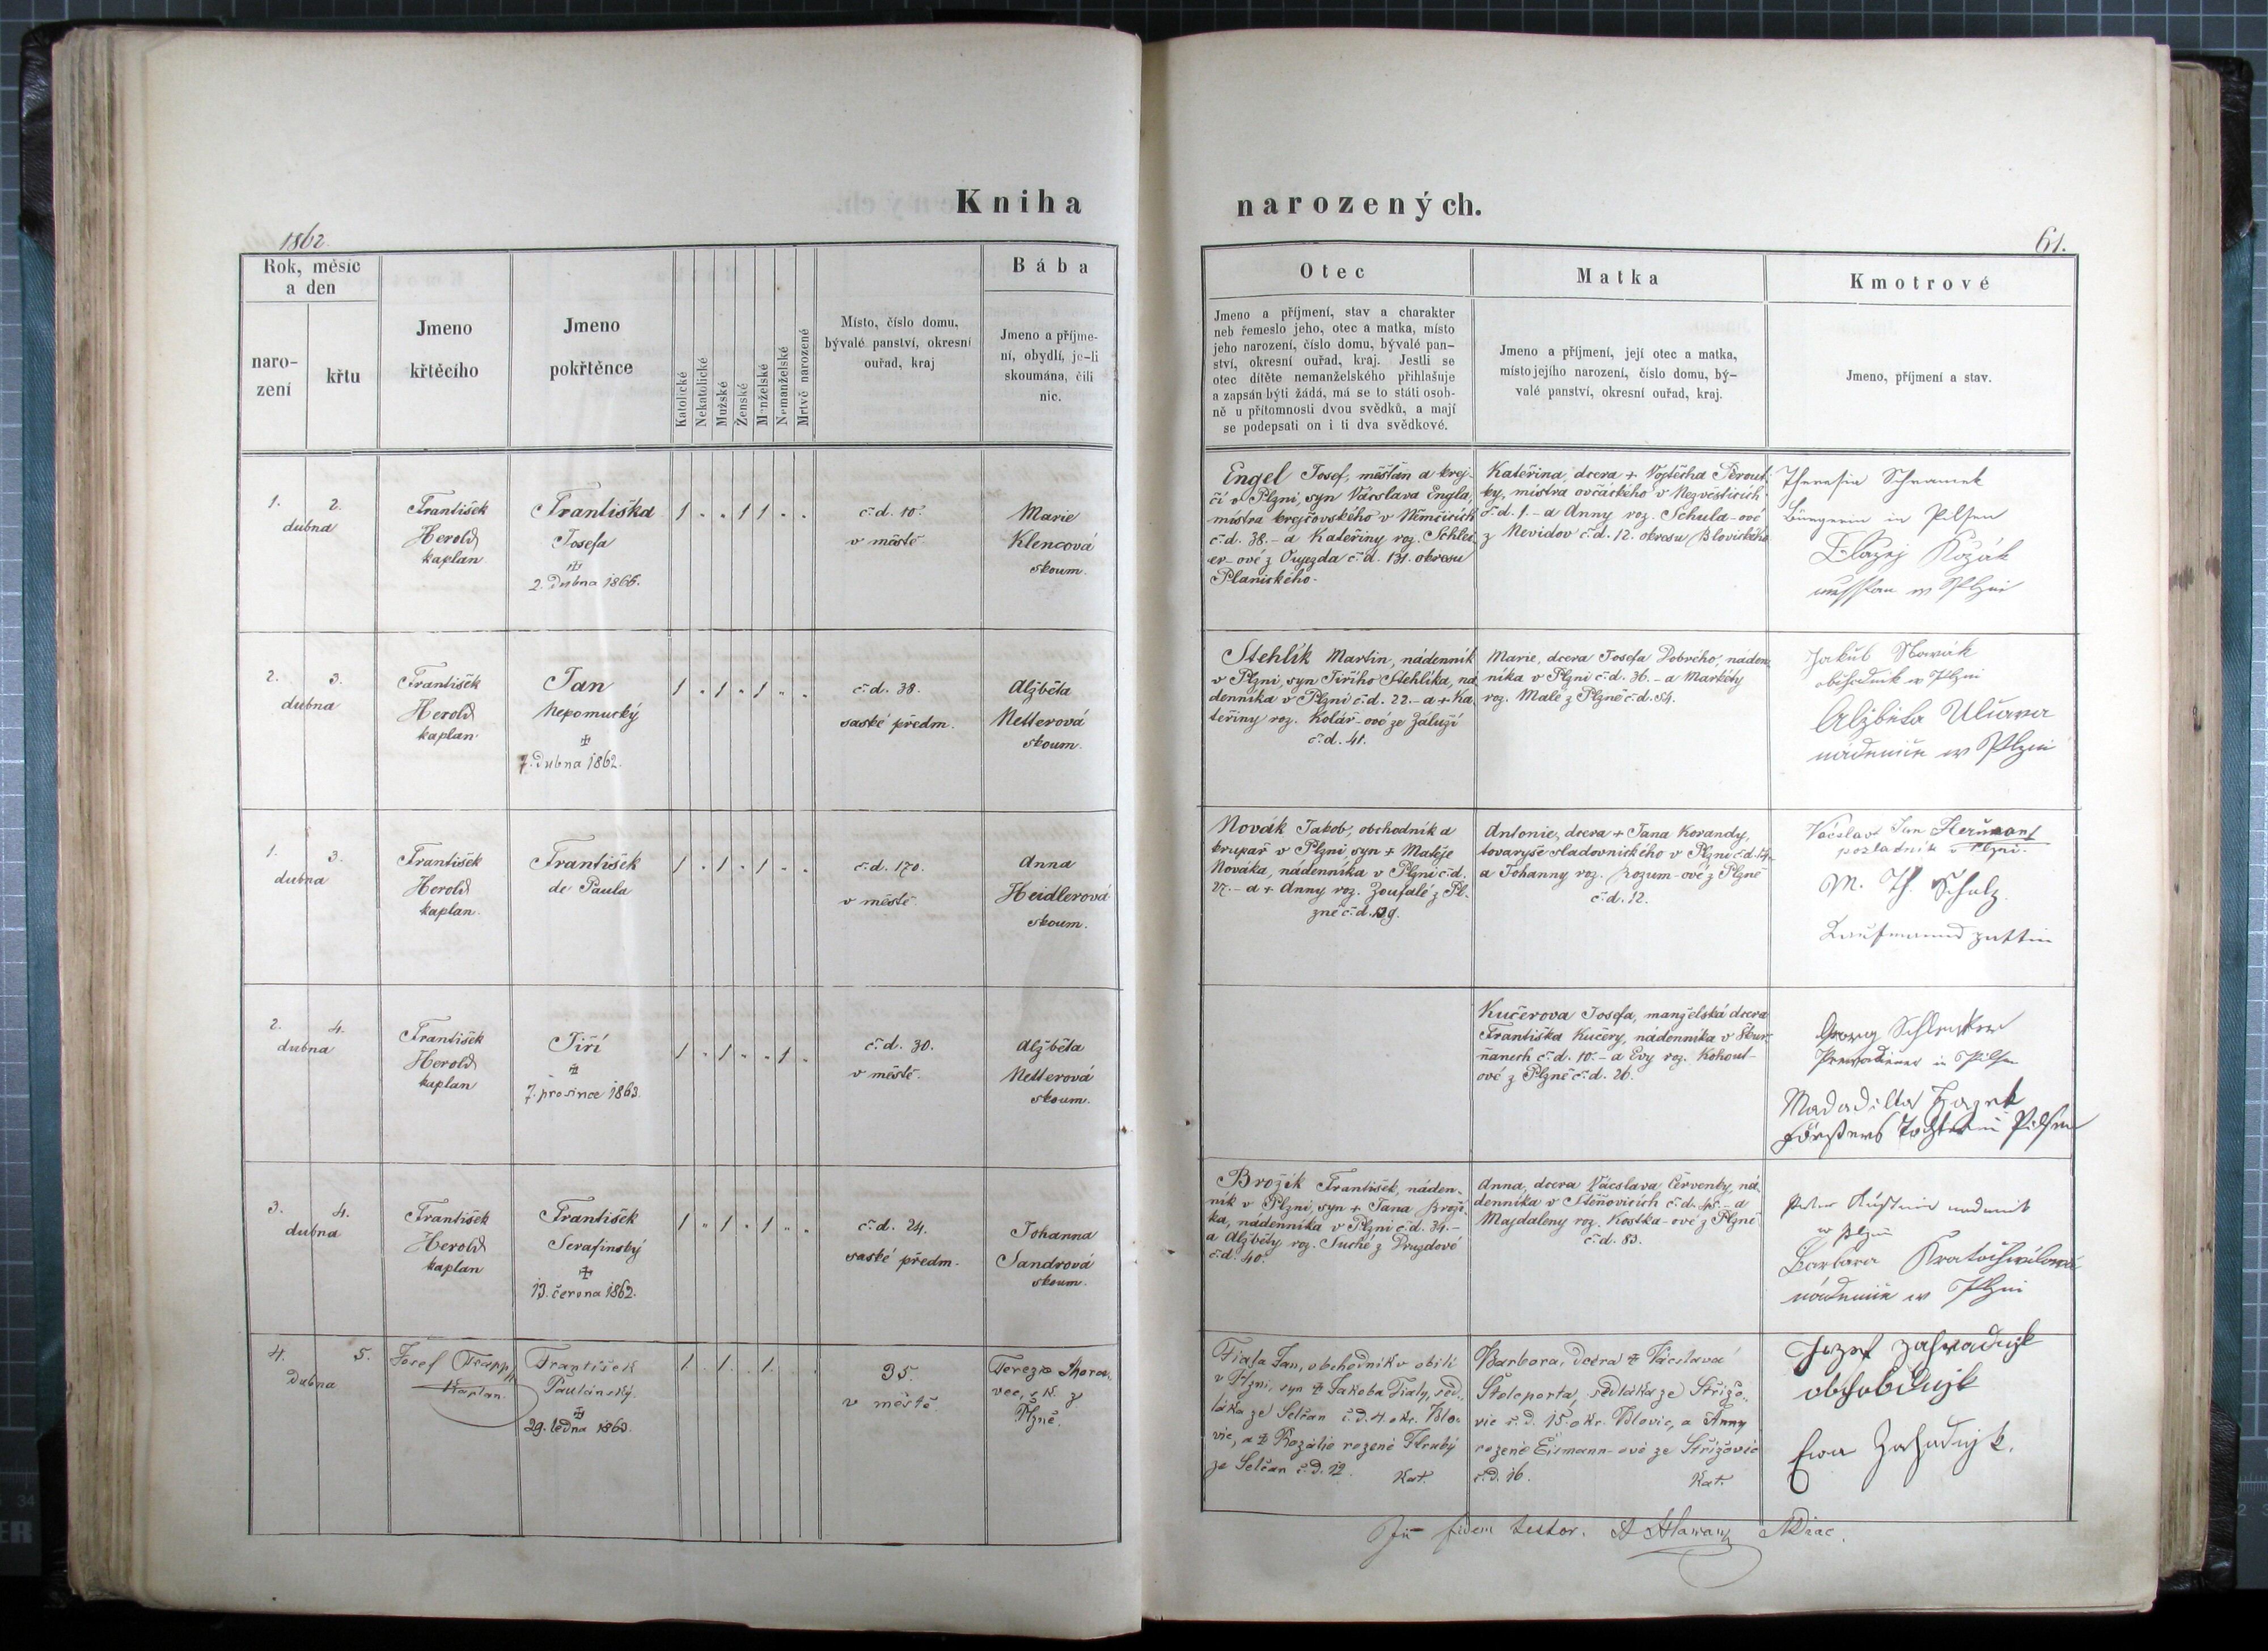 Kniha narozených.
1862
61.
Rok, měsíc
a den
naro-
zení
křtu
Jmeno
křtěcího
Jmeno
pokřtěnce
Katolické
Nekatolické
Mužské
Ženské
Manželské
Nemanželské
Mrtvě narozené
Místo, číslo domu,
bývalé panství, okresní
ouřad, kraj
Bába
Jmeno a příjme-
ní, obydlí, je-li
skoumána, čili
nic.
Otec
Jmeno a příjmení, stav a charakter
neb řemeslo jeho, otec a matka, místo
jeho narození, číslo domu, bývalé pan-
ství, okresní ouřad, kraj. Jestli se
otec dítěte nemanželského přihlašuje
a zapsán býti žádá, má se to státi osob-
ně u přítomnosti dvou svědků, a mají
se podepsati on i ti dva svědkové.
Matka
Jmeno a příjmení, její otec a matka,
místo jejího narození, číslo domu, bý-
valé panství, okresní ouřad, kraj.
Kmotrové
Jmeno, příjmení a stav.
1. 2.
dubna
František
Herold
kaplan
Františka
Josefa
2. dubna 1866.
1 . . 1 1 . .
č. d. 10.
v městě
Marie
Klencová
skoum.
Engel Josef, měšťan a krej-
čí v Plzni, syn Václava Engla,
mistra krejčovského v Němčicích
č. d. 38. - a Kateřiny roz. Schles
er-ové z Oujezda č. d. 131. okresu
Planiského.
Kateřina, dcera + Vojtěcha Perout
ky, mistra ovčáckého v Nezvěsticích
č. d. 1. - a Anny roz. Schula-ové
z Nevidov č. d. 12. okresu Blovického
Theresia Schramek
Bürgerin in Pilsen
Blažej Kozák
w Plzni
2. 3.
dubna
František
Herold
kaplan
Jan
Nepomucký
7. dubna 1862.
1 . 1 . 1 . .
č. d. 38.
saské předm.
Alžběta
Netterová
skoum.
Stehlík Martin, nádenník
v Plzni, syn Jiřího Stehlíka, ná
denníka v Plzni č. d. 22. - a + Ka
teřiny roz. Kolář-ové ze Záluží
č. d. 41.
Marie, dcera Josefa Dobrého, náden
níka v Plzni č. d. 36. - a Markéty
roz. Malé z Plzně č. d. 54.
Jakub Nowák
obchodnik w Plzni
Alžběta
w Plzni
1. 3.
dubna
František
Herold
kaplan
František
de Paula
1 . 1 . 1 . .
č. d. 170.
v městě.
Anna
Heidlerová
skoum.
Novák Jakob, obchodník a
krupař v Plzni, syn + Matěje
Nováka, nádenníka v Plzni č. d.
27. - a + Anny roz. Zoufalé z Pl-
zně č. d.
Antonie, dcera + Jana Korandy,
tovaryše sladovnického v Plzni č. d. 14.
a Johanny roz. Rozum-ové z Plzně
č. d. 12.
Václav Jan
pozladník v Plzni.
M. Th. Scholz
Kaufmanns gattin
2. 4.
dubna
František
Herold
kaplan
Jiří
7. prosince 1863.
1 . 1 . . 1 .
č. d. 30.
v městě.
Alžběta
Netterová
skoum.
Kučerova Josefa, manželská dcera
Františka Kučery, nádenníka v Skur
ňanech č. d. 10. - a Evy roz. Kohout-
ové z Plzně č. d. 26.
Georg
in Pilsen
Försters Tochter in Pilsen
3. 4.
dubna
František
Herold
kaplan
František
Serafinský
13. června 1862.
1 . 1 . 1 . .
č. d. 24.
saské předm.
Johanna
Sandrová
skoum.
Brožík František, náden-
ník v Plzni, syn + Jana Broží-
ka, nádenníka v Plzni č. d. 34. -
a Alžběty roz. Suché z Druzdové
č. d. 40.
Anna, dcera Václava Červenky, ná
denníka v Štěňovicích č. d. 45. - a
Majdaleny roz. Kostka-ové z Plzně
č. d. 83.
w Plzni
Barbara Kratochwilowá
w Plzni
4. 5.
Dubna
Josef Trapp
Kaplan.
František
Paulánský.
29. ledna 1863.
1. . 1. . 1. . .
35.
v městě.
Terezie
z
Plzně.
Fiala Jan, obchodník v obilí
v Plzni, syn + Jakoba Fialy, sed-
láka ze Selčan č. d. 4. okr. Blo-
vic, a + Rozálie rozené Hrubý
ze Selčan č. d. 12. Kat.
Barbora, dcera + Václava
sedláka ze Střížo-
vic č. d. 15. okr. Blovic, a Anny
rozené Eismann-ové ze Střížovic
č. d. 16. Kat.
Jozef Zahradnjk
Ewa Zahradnjk.
fidem testor.